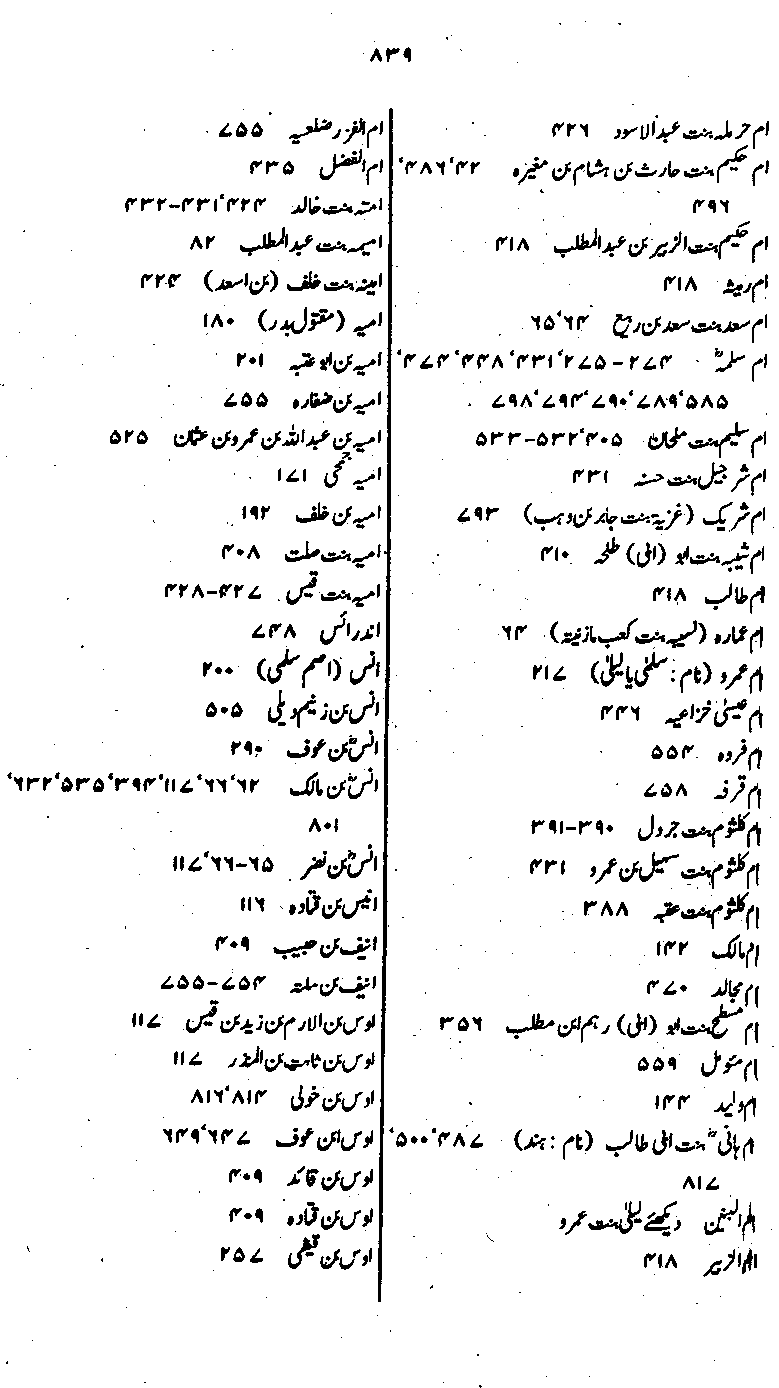 ۸۳۹
ام حرملہ بنت عبدالاسود ۴۲۶
ام حکیم بنت حارث بن ہشام بن مغیرہ ۴۲'۴۸۶'
۴۹۶
ام حکیم بنت الزبیر بن عبدالمطلب ۴۱۸
ام رمثہ ۴۱۸
ام سعد بنت سعد بن ربیع ۶۴'۶۵
ام سلمہؓ ۲۷۴-۲۷۵'۴۳۱'۴۴۸'۴۷۴'
۵۸۵'۷۸۹'۷۹۰'۷۹۴'۷۹۸
ام سلیم بنت ملحان ۴۰۵'۵۳۲-۵۳۳
ام شرجیل بنت حسنہ ۴۳۱
ام شریک (غزیہ بنت جابر بن وہب) ۷۹۳
ام شیبہ بنت ابو (ابی) طلحہ ۴۱۰
ام طالب ۴۱۸
ام عمارہ (نسیبہ بنت کعب مازنیتہ) ۶۴
ام عمرو (نام: سلمٰی یا لیلیٰ) ۲۱۷
ام عیسٰی خزاعیہ ۴۴۶
ام فروہ ۵۵۴
ام قرفہ ۷۵۸
ام کلثوم بنت جردل ۳۹۰-۳۹۱
ام کلثوم بنت سہیل بن عمرو ۴۳۱
ام کلثوم بنت عقبہ ۳۸۸
ام مالک ۱۴۲
ام مجالد ۴۷۰
ام مسطح بنت ابو (ابی) رہم ابن مطلب ۳۵۶
ام مئومل ۵۵۹
ام ولید ۱۴۴
ام ہانیؓ بنت ابی طالب (نام: ہند) ۴۸۷'۵۰۰'
۸۱۷
ام البنین دیکھئے لیلیٰ بنت عمرو
ام الزبیر ۴۱۸
ام الفزر ضلعیہ ۷۵۵
ام الفضل ۴۳۵
امتہ بنت خالد ۴۲۴'۴۳۱-۴۳۲
امیمہ بنت عبدالمطلب ۸۲
امینہ بنت خلف (بن اسعد) ۴۲۴
امیہ (مقتول بدر) ۱۸۰
امیہ بن ابو عتبہ ۲۰۱
امیہ بن ضفارہ ۷۵۵
امیہ بن عبداللہ بن عمرو بن عثمان ۵۲۵
امیہ جمحی ۱۷۱
امیہ بن خلف ۱۹۲
امیہ بنت صلت ۴۰۸
امیہ بنت قیس ۴۲۷-۴۲۸
اندرائس ۷۴۸
انس (اصم سلمی) ۲۰۰
انس بن زنیم دیلی ۵۰۵
انسؓ بن عوف ۲۹۰
انسؓ بن مالک ۶۲'۶۶'۱۱۷'۳۹۴'۵۳۵'۶۳۲'
۸۰۱
انسؓ بن نضر ۶۵-۶۶'۱۱۷
انیس بن قتادہ ۱۱۶
انیف بن حبیب ۴۰۹
انیف بن ملتہ ۷۵۴-۷۵۵
اوس بن الارم بن زید بن قیس ۱۱۷
اوس بن ثابت بن المنذر ۱۱۷
اوس بن خولی ۸۱۴'۸۱۶
اوس ابن عوف ۶۴۷'۶۴۹
اوس بن قائد ۴۰۹
اوس بن قتادہ ۴۰۹
اوس بن قیظی ۲۵۷